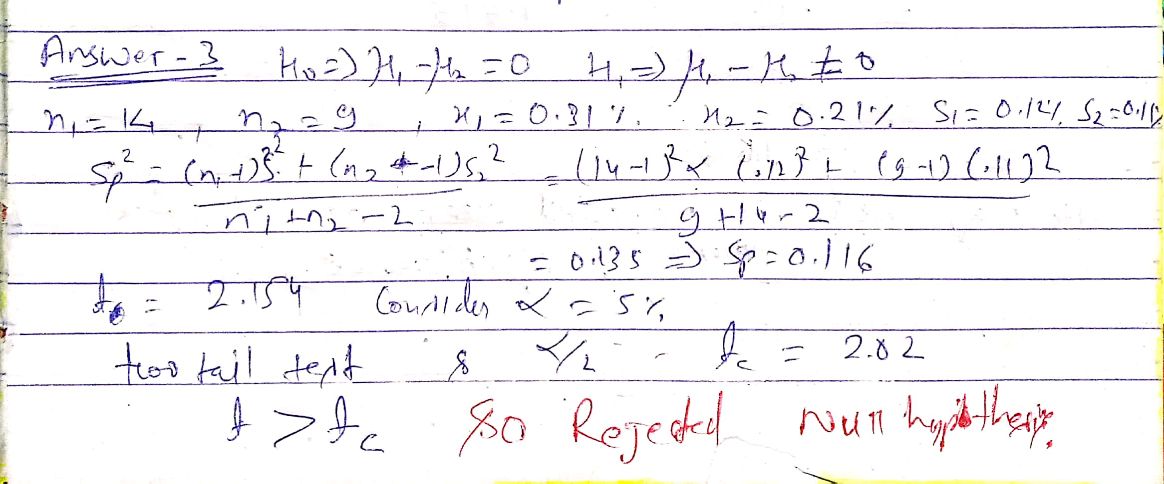 Answer - 3 H₀ => μ₁ - μ₂ = 0 H₁ => μ₁ - μ₂ ≠ 0
n₁ = 14, n₂ = 9, x₁ = 0.31%. x₂ = 0.21% S₁ = 0.12%, S₂ = 0.11%
Sp² = (n₁-1)S₁² + (n₂-1)S₂² / n₁+n₂-2 = (14-1)² x (.12)² + (9-1)(.11)2 / 9+14-2
= 0.135 => Sp = 0.116
t₀ = 2.154 Consider α = 5%
two tail test & α/2 - tc = 2.02
t > tc so Rejected Null hypothesis.